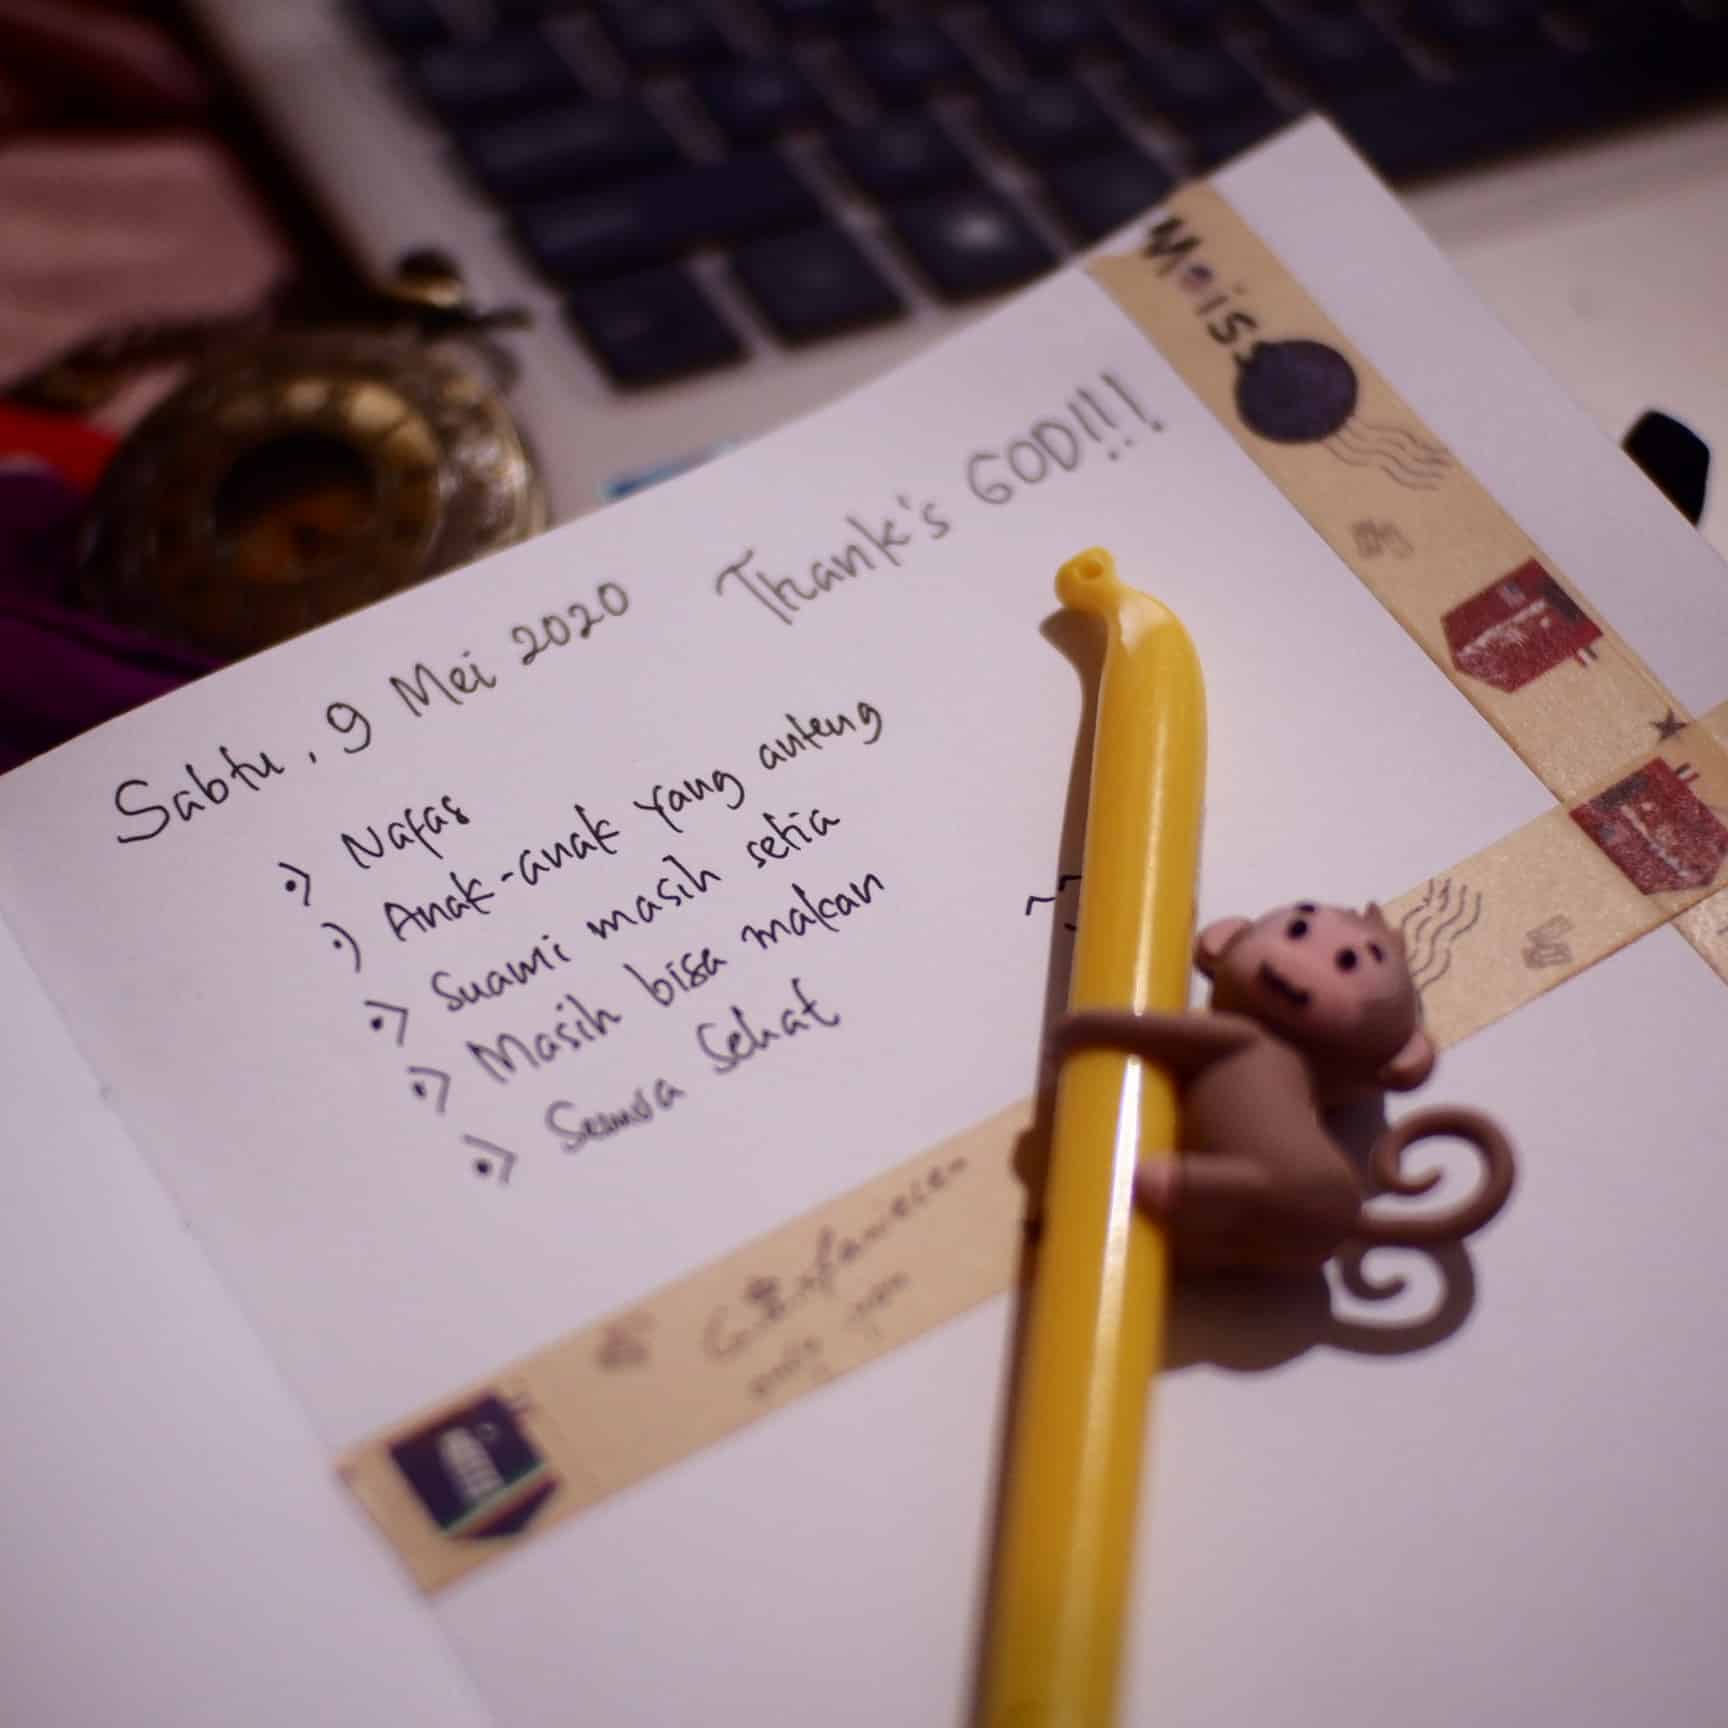 Sabtu, 9 Mei 2020 Thank's GOD!!!
•) Nafas
•) Anak-anak yang anteng
•) Suami masih setia
•) Masih bisa makan
•) Semua Sehat
only you